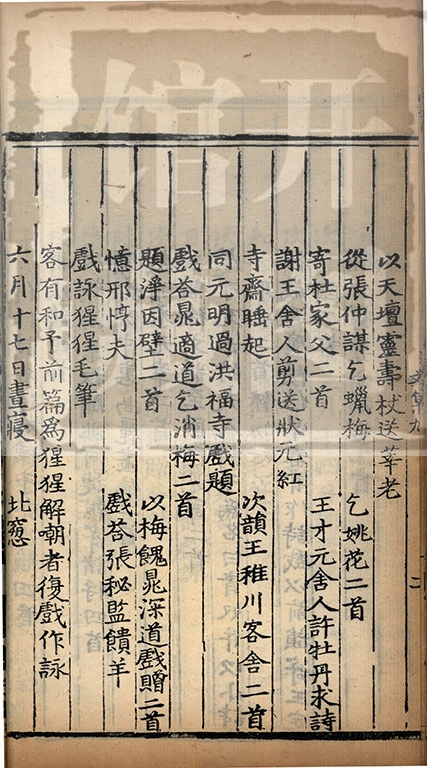 以天壇靈壽杖送莘老
從張仲謀乞蠟梅 乞姚花二首
寄杜家父二首 王才元舍人許牡丹求詩
謝王舍人剪送狀元紅
寺齋睡起 次韻王稚川客舍二首
同元明過洪福寺戲題
戲荅晁適道乞消梅二首
題淨因壁二首 以梅餽晁深道戲贈二首
憶邢惇夫 戲荅張秘監饋羊
戲詠猩猩毛筆
客有和予前篇為猩猩解嘲者復戲作詠
六月十七日晝寢 北窻
二
开
馆